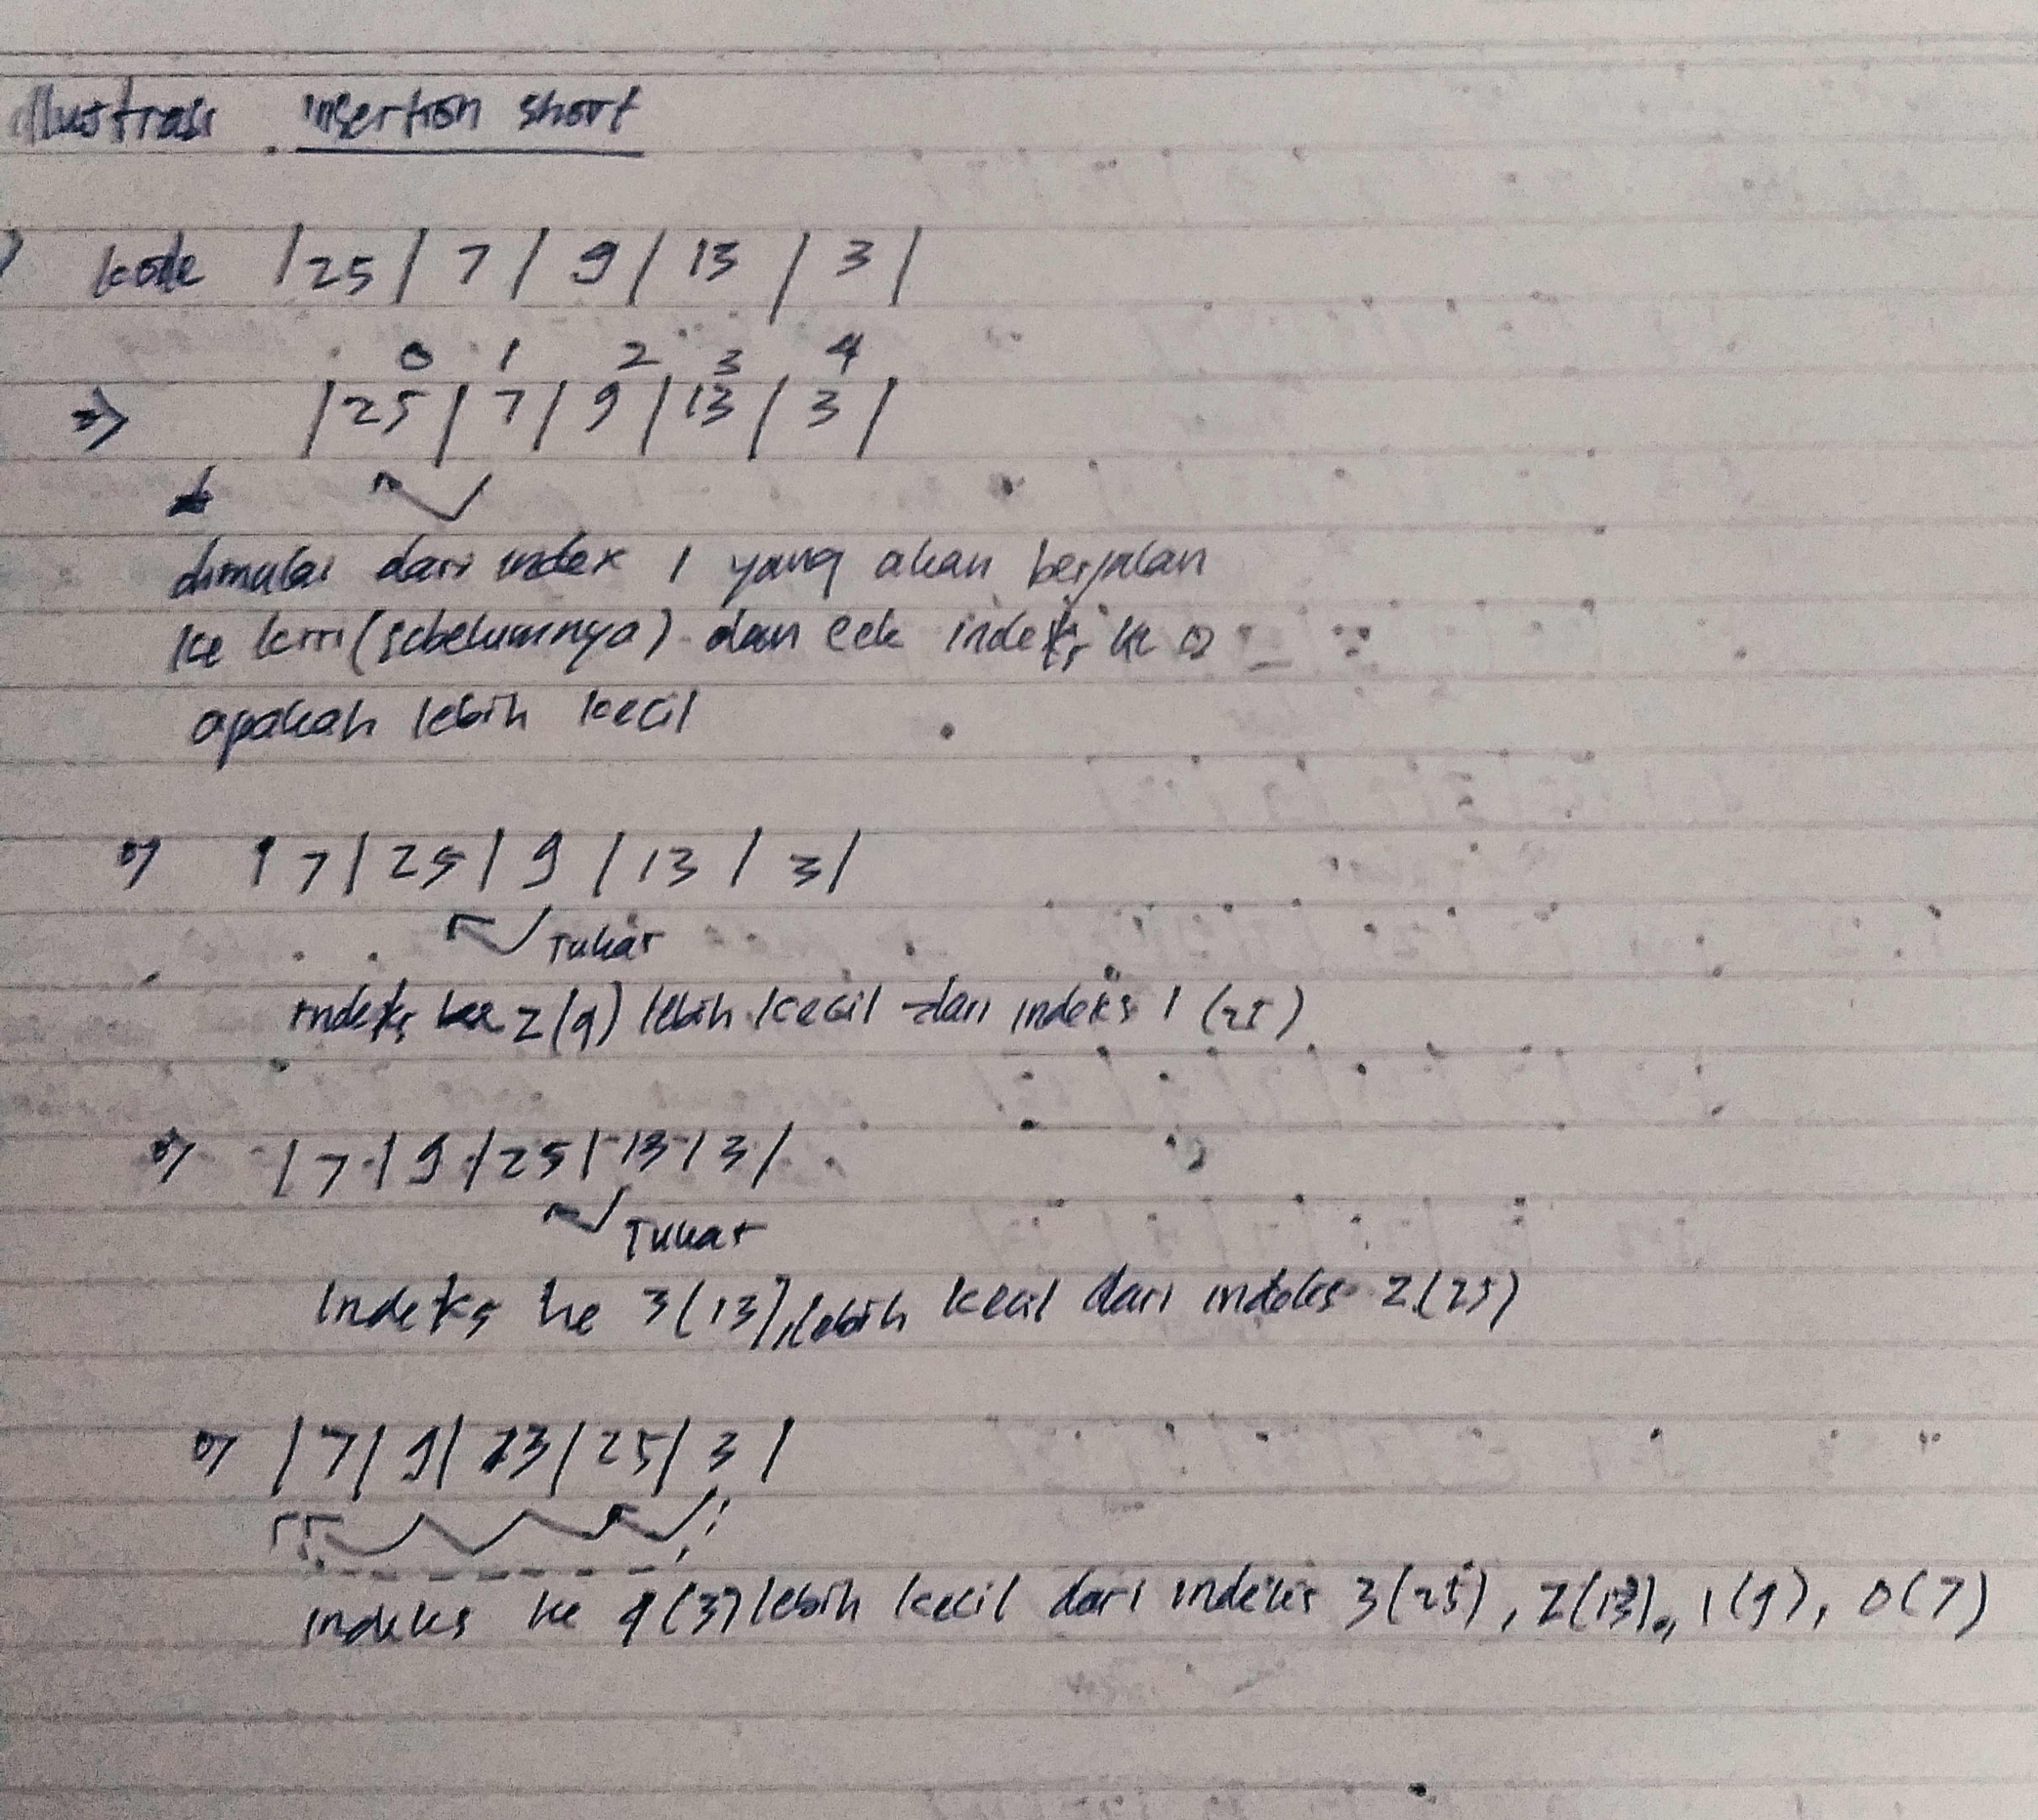 illustrasi insertion short
kode |25|7|9|13|3|
0 1 2 3 4
=> |25|7|9|13|3|
dimulai dari index 1 yang akan berjalan
ke kiri (sebelumnya) dan cek indeks ke 0
apakah lebih kecil
=> |7|25|9|13|3|
Tukar
indeks ke 2(9) lebih kecil dari indeks 1 (25)
=> |7|9|25|13|3|
Tukar
Indeks ke 3(13), lebih kecil dari indeks 2(25)
=> |7|9|13|25|3|
indeks ke 4(3) lebih kecil dari indeks 3(25), 2(13), 1(9), 0(7)